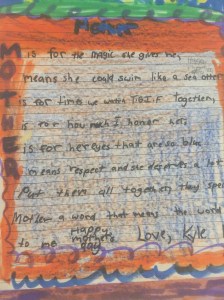 Mother
M is for the magic she gives me,
O means she could swim like a sea otter
T is for time we watch T.G.I.F together,
H is for how much I honor her,
E is for her eyes that are so blue
R means respect and she deserves a lot
Put them all together they spell
Mother a word that means the world
to me Happy mother's day Love, Kyle